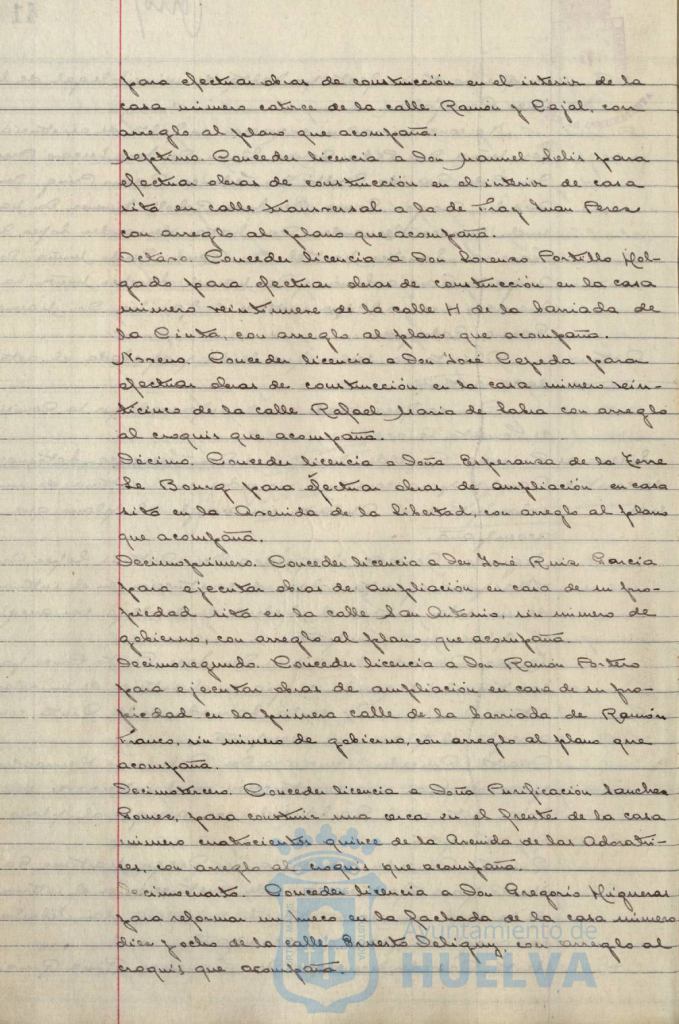 para efectuar obras de construcción en el interior de la
casa número catorce de la calle Ramón y Cajal, con
arreglo al plano que acompaña.
Septimo. Conceder licencia a Don Manuel Solis para
efectuar obras de construcción en el interior de casa
sita en calle transversal a la de Fray Juan Perez
con arreglo al plano que acompaña.
Octavo. Conceder licencia a Don Lorenzo Portillo Hol-
gado para efectuar obras de construcción en la casa
número veintinueve de la calle H de la barriada de
la Cinta, con arreglo al plano que acompaña.
Noveno. Conceder licencia a Don José Cepeda para
efectuar obras de construcción en la casa número vein-
ticinco de la calle Rafael María de Labra con arreglo
al croquis que acompaña.
Décimo. Conceder licencia a Doña Esperanza de la Torre
Le Bourg para efectuar obras de ampliación en casa
sita en la Avenida de la Libertad, con arreglo al plano
que acompaña.
Decimoprimero. Conceder licencia a Don José Ruiz García
para ejecutar obras de ampliación en casa de su pro-
piedad sita en la calle San Antonio, sin número de
gobierno, con arreglo al plano que acompaña.
Decimosegundo. Conceder licencia a Don Ramón Portero
para ejecutar obras de ampliación en casa de su pro-
piedad en la primera calle de la barriada de Ramón
Franco, sin número de gobierno, con arreglo al plano que
acompaña.
Decimotercero. Conceder licencia a Doña Purificación Sanchez
Gomez, para construir una cerca en el frente de la casa
número cuatrocientos quince de la Avenida de las Adoratri-
ces, con arreglo al croquis que acompaña.
Decimocuarto. Conceder licencia a Don Gregorio Higueras
para reformar un hueco en la fachada de la casa número
diez y ocho de la calle Ernesto Deligny, con arreglo al
croquis que acompaña.
Ayuntamiento de
HUELVA